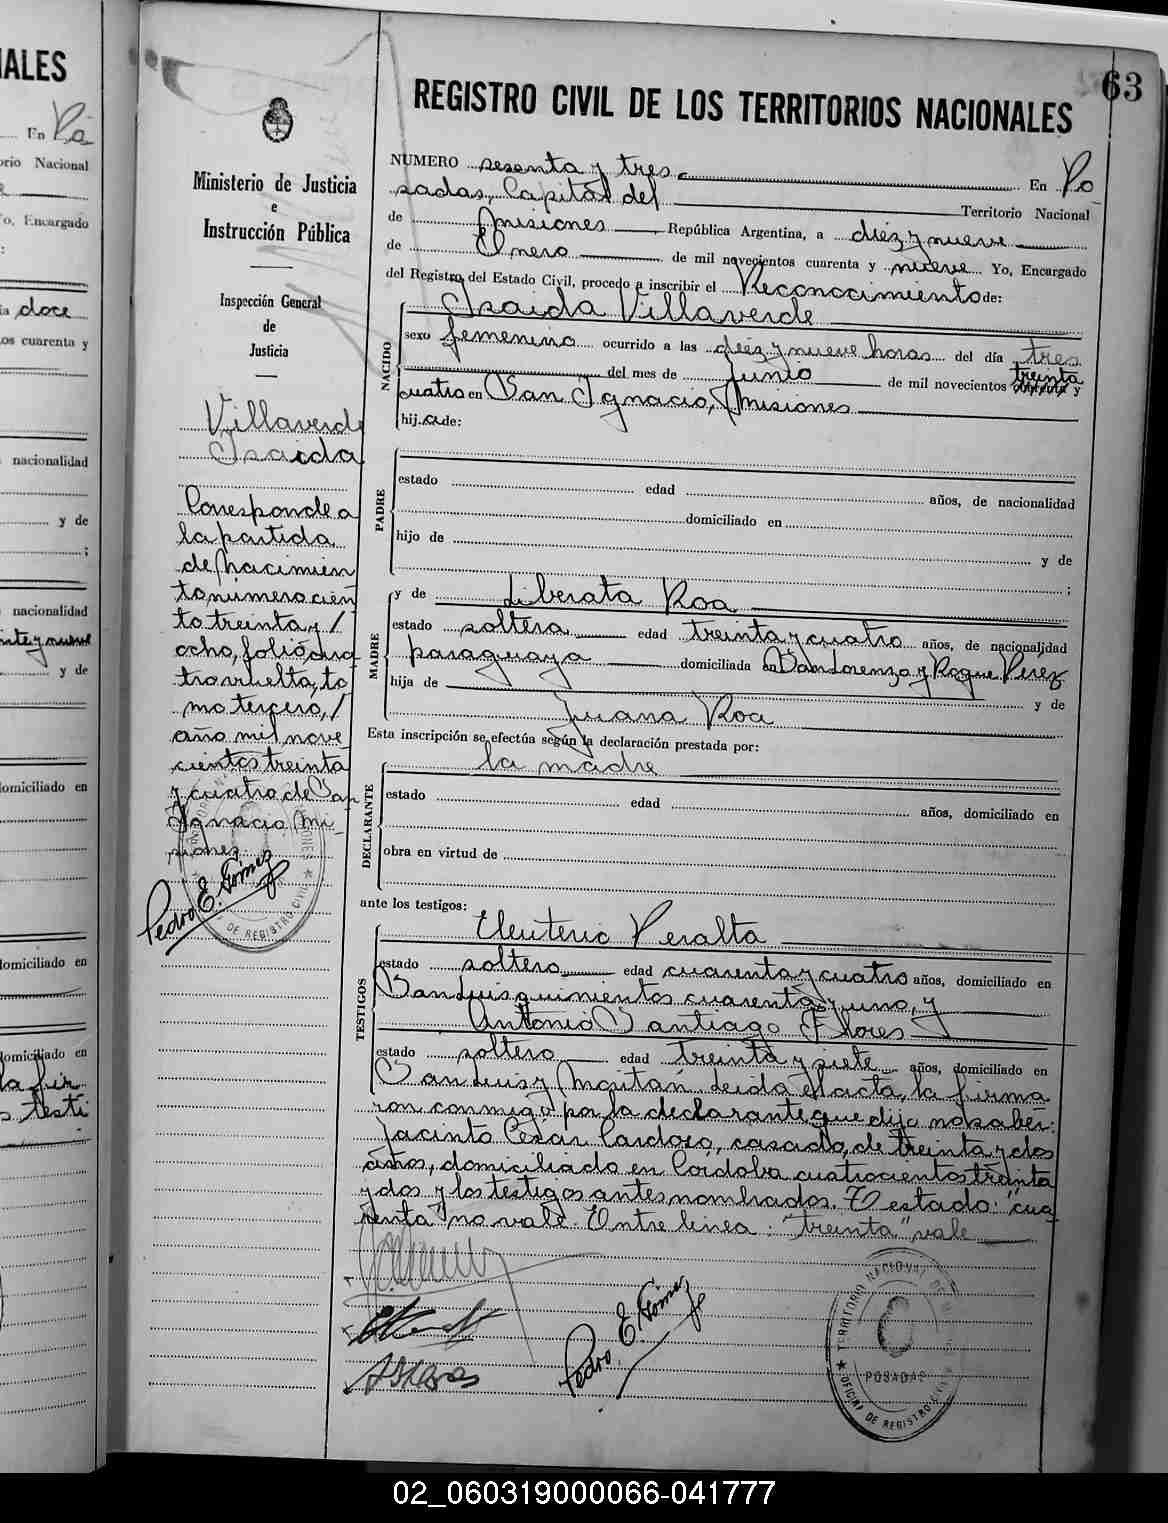 63
REGISTRO CIVIL DE LOS TERRITORIOS NACIONALES
Ministerio de Justicia
e
Instrucción Pública
Inspección General
de
Justicia
Villaverde
Isaida
Corresponde a
la partida
de Nacimien
to número cien
to treinta y /
ocho, folio cua
tro vuelta, to
mo tercero, /
año mil nove-
cientos treinta
y cuatro de San
Ignacio Mi-
siones.
Pedro E. Gómez
NUMERO sesenta y tres En Po
sadas, Capital del Territorio Nacional
de Misiones República Argentina, a diez y nueve
de Enero de mil novecientos cuarenta y nueve Yo, Encargado
del Registro del Estado Civil, procedo a inscribir el Reconocimiento de:
NACIDO
Isaida Villaverde
sexo femenino ocurrido a las diez y nueve horas del día tres
treinta
del mes de Junio de mil novecientos cuarenta y
cuatro en San Ignacio, Misiones
hij a de:
PADRE
estado edad años, de nacionalidad
domiciliado en
hijo de y de
;
MADRE
y de Liberata Roa
estado soltera edad treinta y cuatro años, de nacionalidad
paraguaya domiciliada en San Lorenzo y Roque Perez
hija de y de
Juana Roa
Esta inscripción se efectúa según la declaración prestada por:
DECLARANTE
la madre
estado edad años, domiciliado en
obra en virtud de
ante los testigos:
TESTIGOS
Eleuterio Peralta
estado soltero edad cuarenta y cuatro años, domiciliado en
San Luis quinientos cuarenta y uno, y
Antonio Santiago Flores
estado soltero edad treinta y siete años, domiciliado en
San Luis y Maitán Leida el acta, la firma
ron conmigo por la declarante que dijo no saber:
Jacinto César Cardozo, casado, de treinta y dos
años, domiciliado en Córdoba cuatrocientos treinta
y dos y los testigos antes nombrados. Testado: "cua
renta" no vale. Entre linea: "treinta" vale
Pedro E. Gómez
TERRITORIO NACIONAL DE
POSADAS
OFICINA DE REGISTRO CIVIL
DE REGISTRO CIVIL
IALES
En Po
orio Nacional
o, Encargado
:
ia doce
os cuarenta y
nacionalidad
y de
;
nacionalidad
inte y nueve
y de
omiciliado en
domiciliado en
domiciliado en
la fir
s testi
02_060319000066-041777